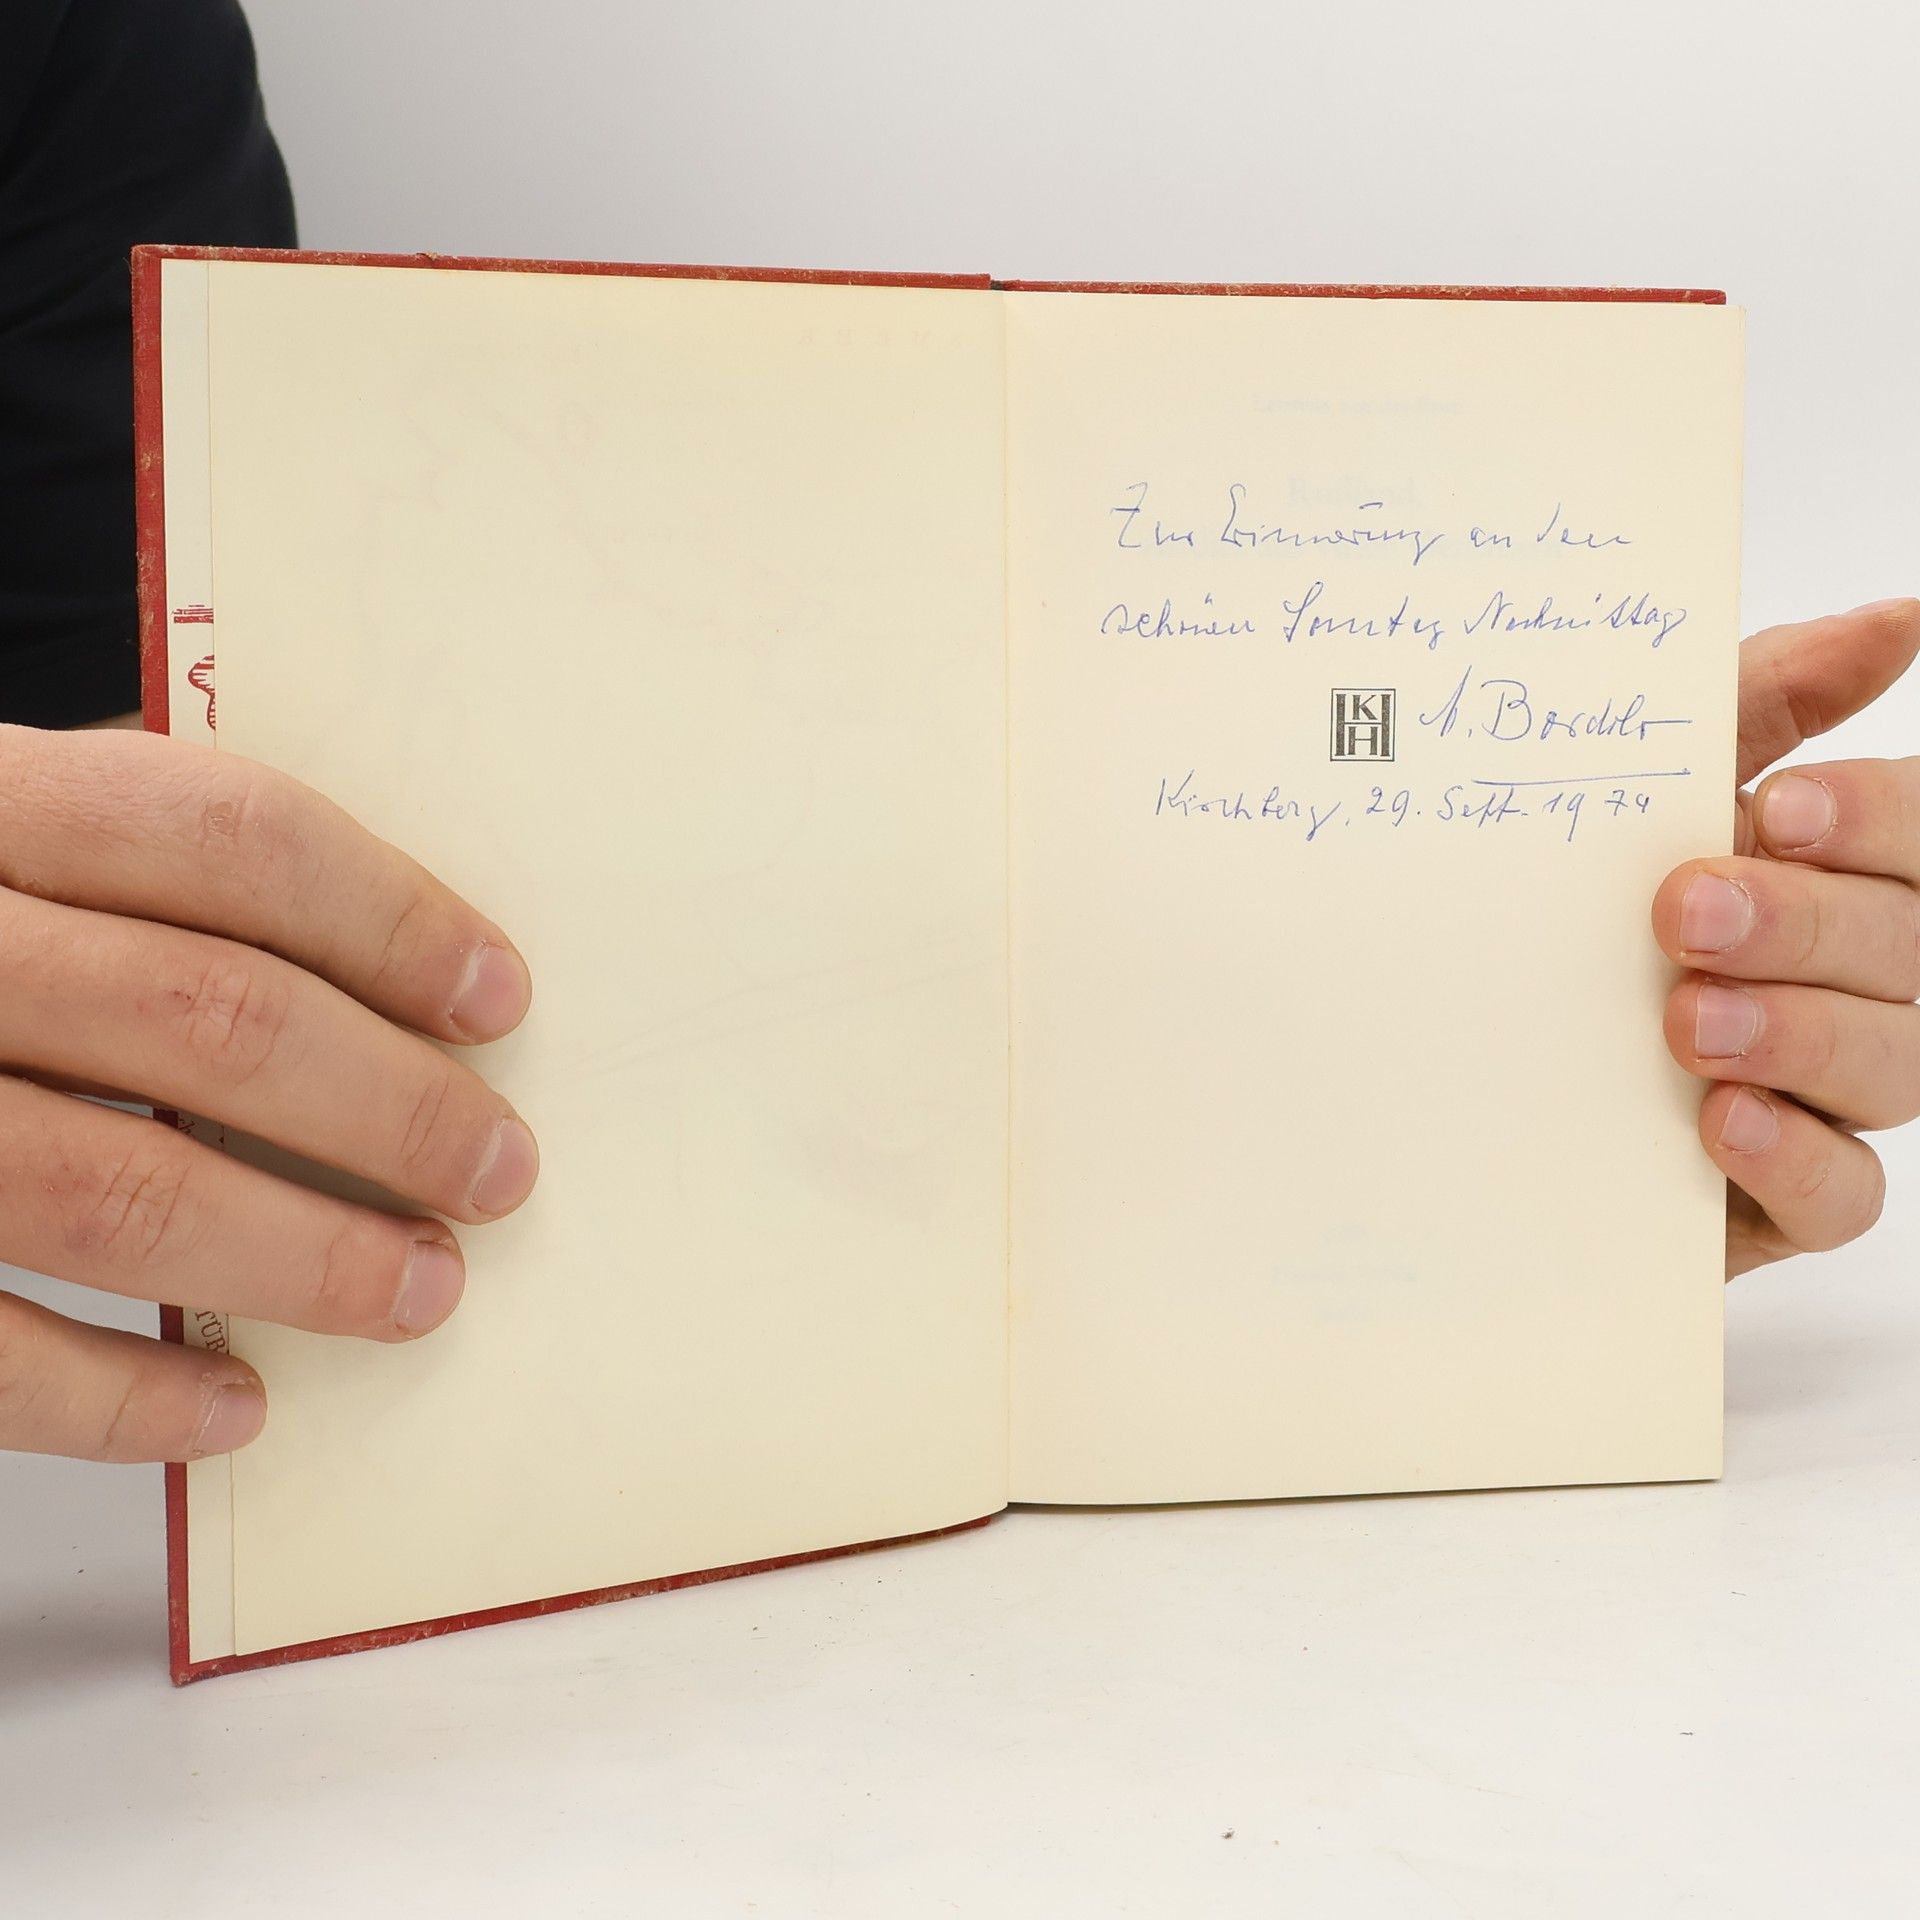 Zur Erinnerung an den
schönen Sonntag Nachmittag
KH
Kirchberg, 29. Sept. 1974
TÜB